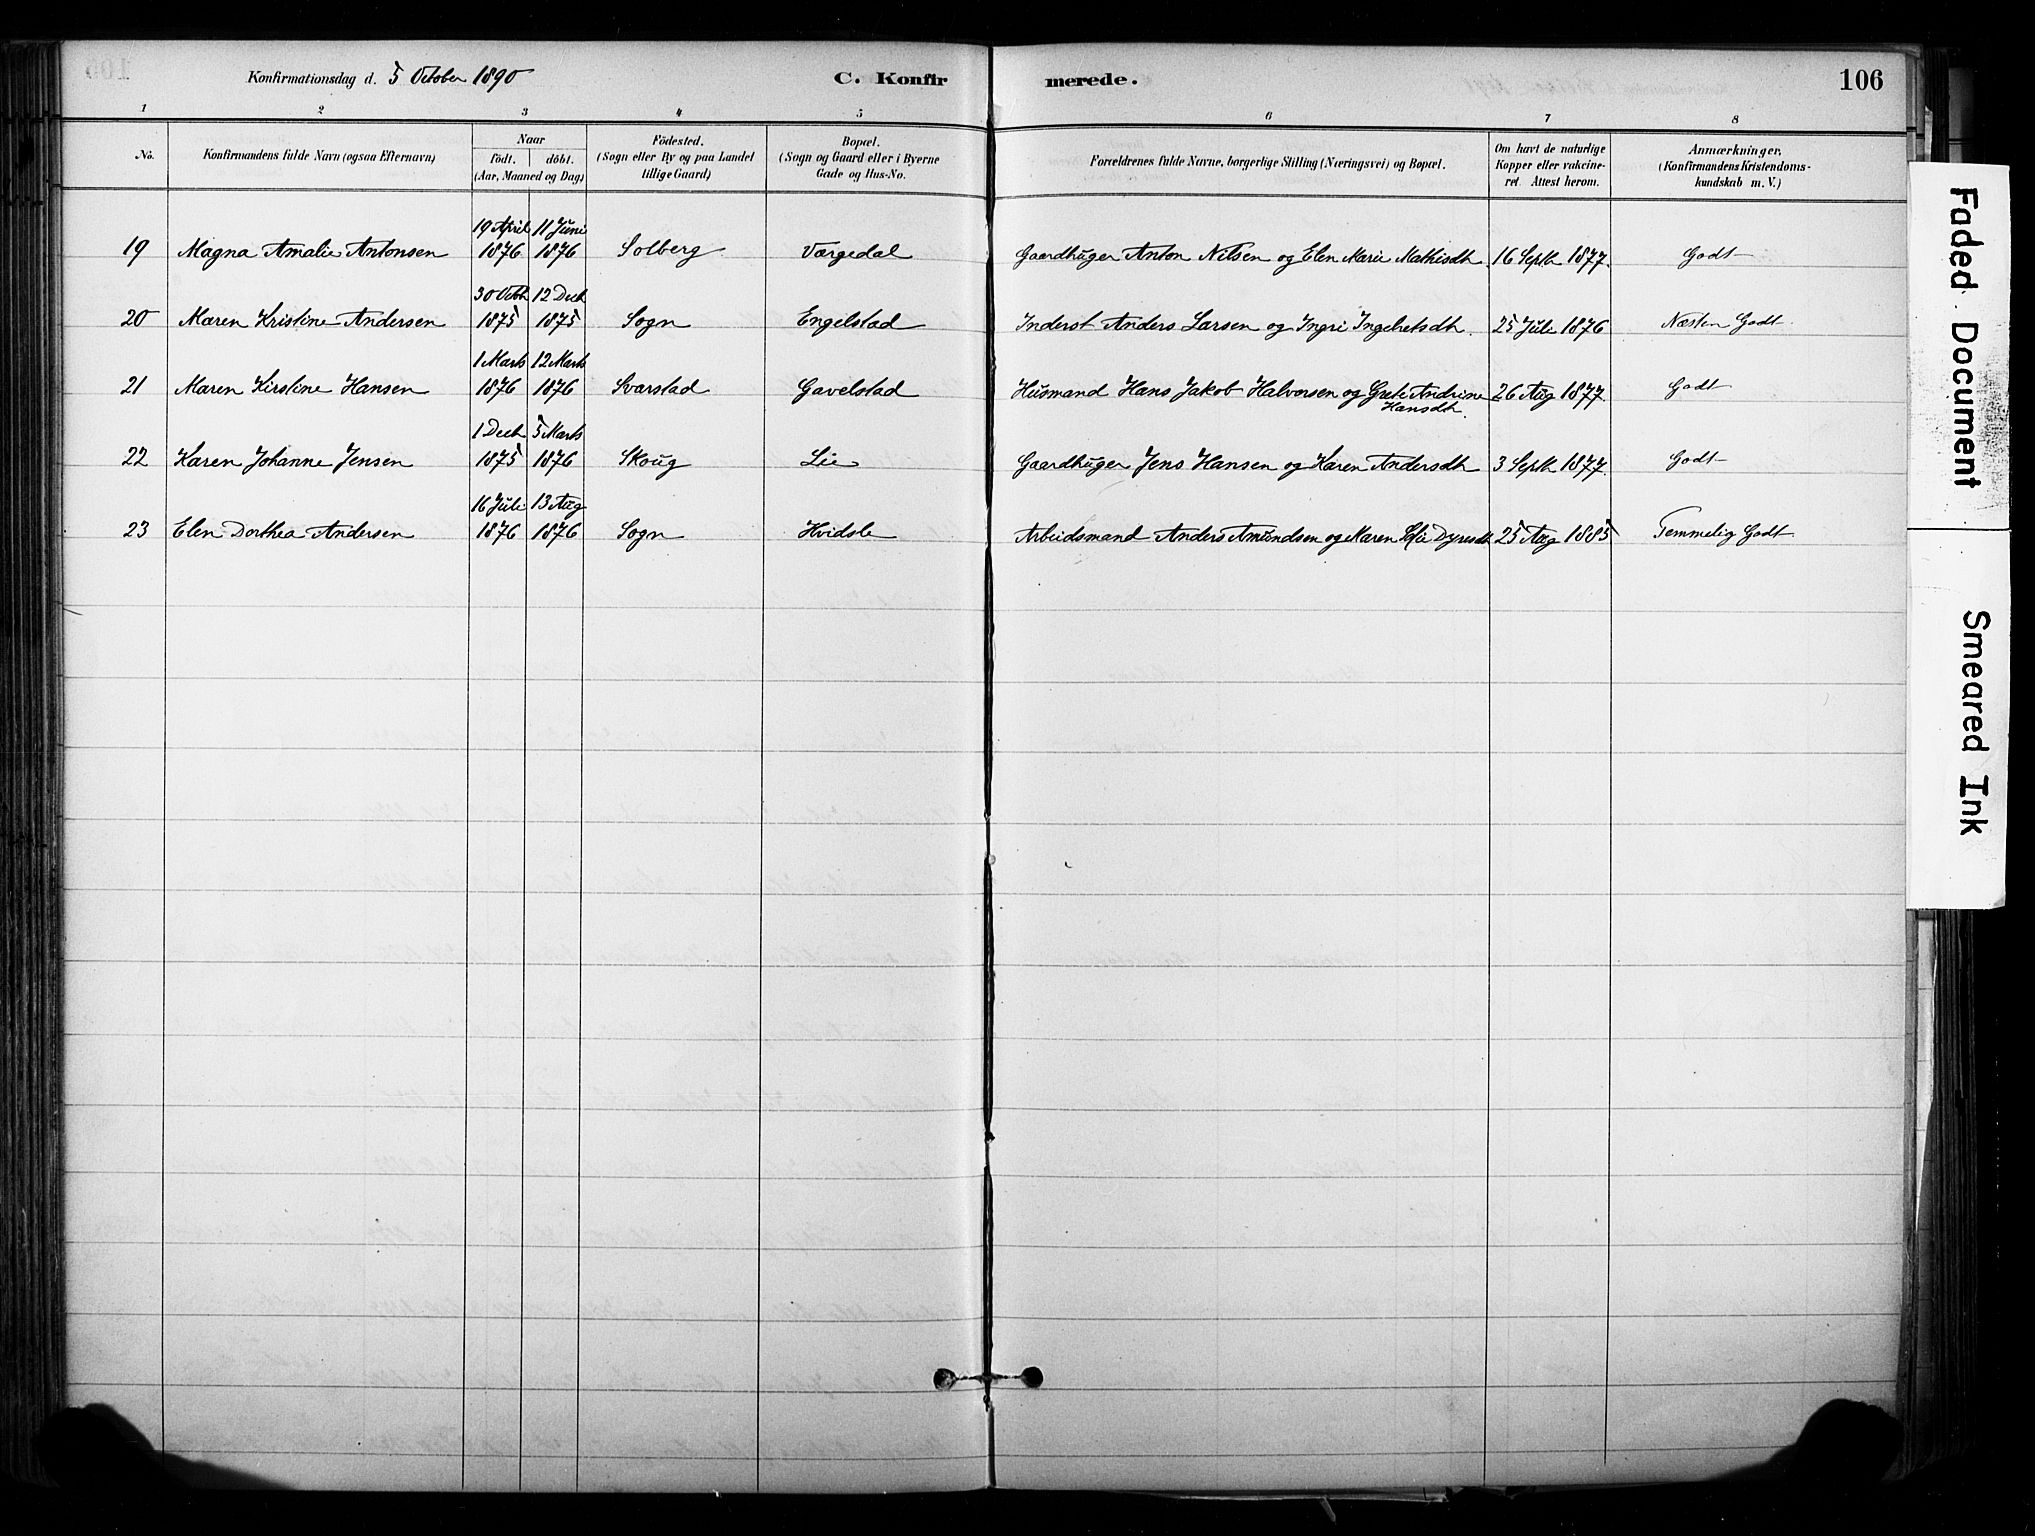 Konfirmationsdag d. 5 October 1890 C. Konfirmerede. 106
1 2 3 4 5 6 7 8
No. Konfirmandens fulde Navn (ogsaa Efternavn) Naar födt. döbt. (Aar, Maaned og Dag) Födested. (Sogn eller By og paa Landet tillige Gaard) Bopæl. (Sogn og Gaard eller i Byerne Gade og Hus-No. Forældrenes fulde Navne, borgerlige Stilling (Næringsvei) og Bopæl. Om havt de naturlige Kopper eller vakcineret. Attest herom. Anmærkninger, (Konfirmandens Kristendomskundskab m. V.)
19 Magna Amalie Antonsen 19 April 1876 11 Juni 1876 Solberg Værgedal Gaardbruger Anton Nilsen og Elen Marie Mathisdtr. 16 Septr 1877. Godt
20 Maren Kristine Andersen 30 Octbr 1875 12 Decbr 1875 Sogn Engelstad Inderst Anders Larsen og Ingri Ingebretsdtr. 25 Juli 1876 Næsten Godt.
21 Maren Kirstine Hansen 1 Marts 1876 12 Marts 1876 Svarstad Gavelstad Husmand Hans Jakob Halvorsen og Grete Andrine Hansdtr. 26 Aug 1877. Godt
22 Karen Johanne Jensen 1 Decbr 1875 5 Marts 1876 Skoug Lie Gaardbruger Jens Hansen og Karen Andersdtr 3 Septr 1877. Godt
23 Elen Dorthea Andersen 16 Juli 1876 13 Aug 1876 Sogn Hvidste Arbeidsmand Anders Amundsen og Maren Dyresdtr 25 Aug 1885 Temmelig Godt.
Faded Document
Smeared Ink